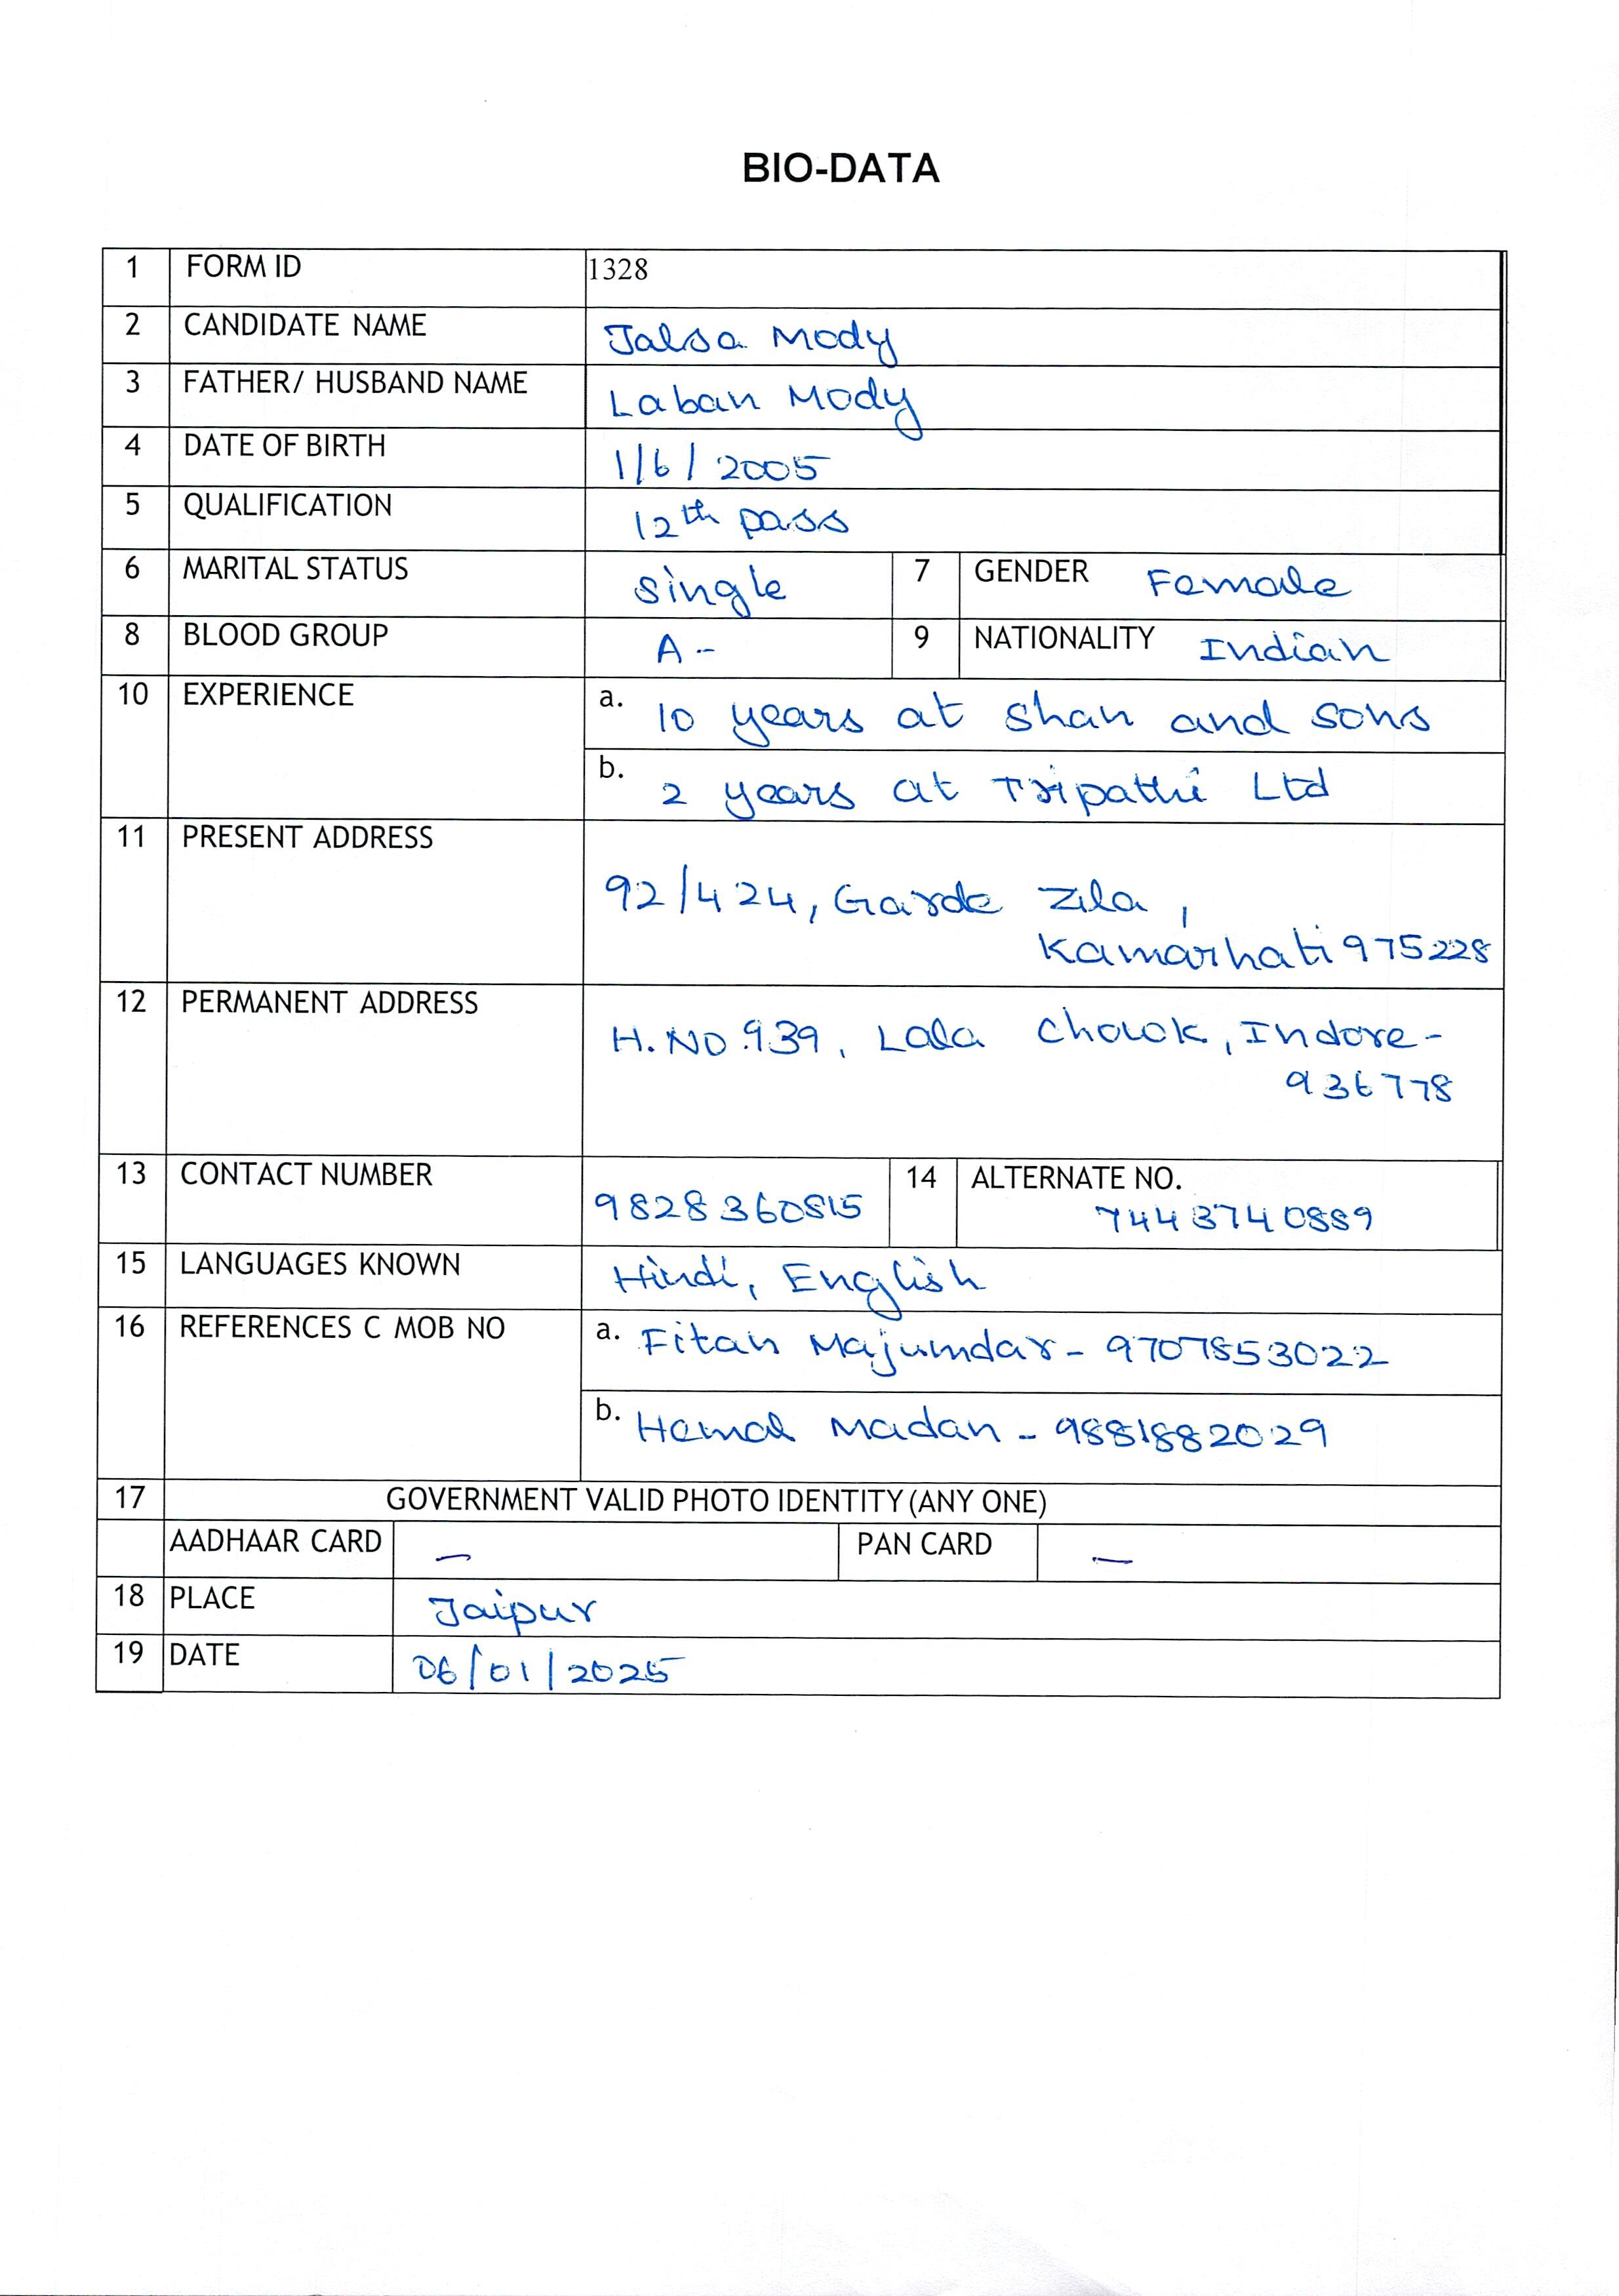 BIO-DATA
1 FORM ID 1328
2 CANDIDATE NAME Jalsa Mody
3 FATHER/ HUSBAND NAME Laban Mody
4 DATE OF BIRTH 1/6/2005
5 QUALIFICATION 12th pass
6 MARITAL STATUS Single 7 GENDER Female
8 BLOOD GROUP A- 9 NATIONALITY Indian
10 EXPERIENCE a. 10 years at Shan and sons
b. 2 years at Tripathi Ltd
11 PRESENT ADDRESS
92/424, Garde Zila,
Kamarhati 975228
12 PERMANENT ADDRESS
H.NO.939, Lala Chowk, Indore-
936778
13 CONTACT NUMBER 9828360815 14 ALTERNATE NO.
7443740889
15 LANGUAGES KNOWN Hindi, English
16 REFERENCES C MOB NO a. Fitan Majumdar - 9707853022
b. Hemal Madan - 9881882029
17 GOVERNMENT VALID PHOTO IDENTITY (ANY ONE)
AADHAAR CARD — PAN CARD —
18 PLACE Jaipur
19 DATE 06/01/2025